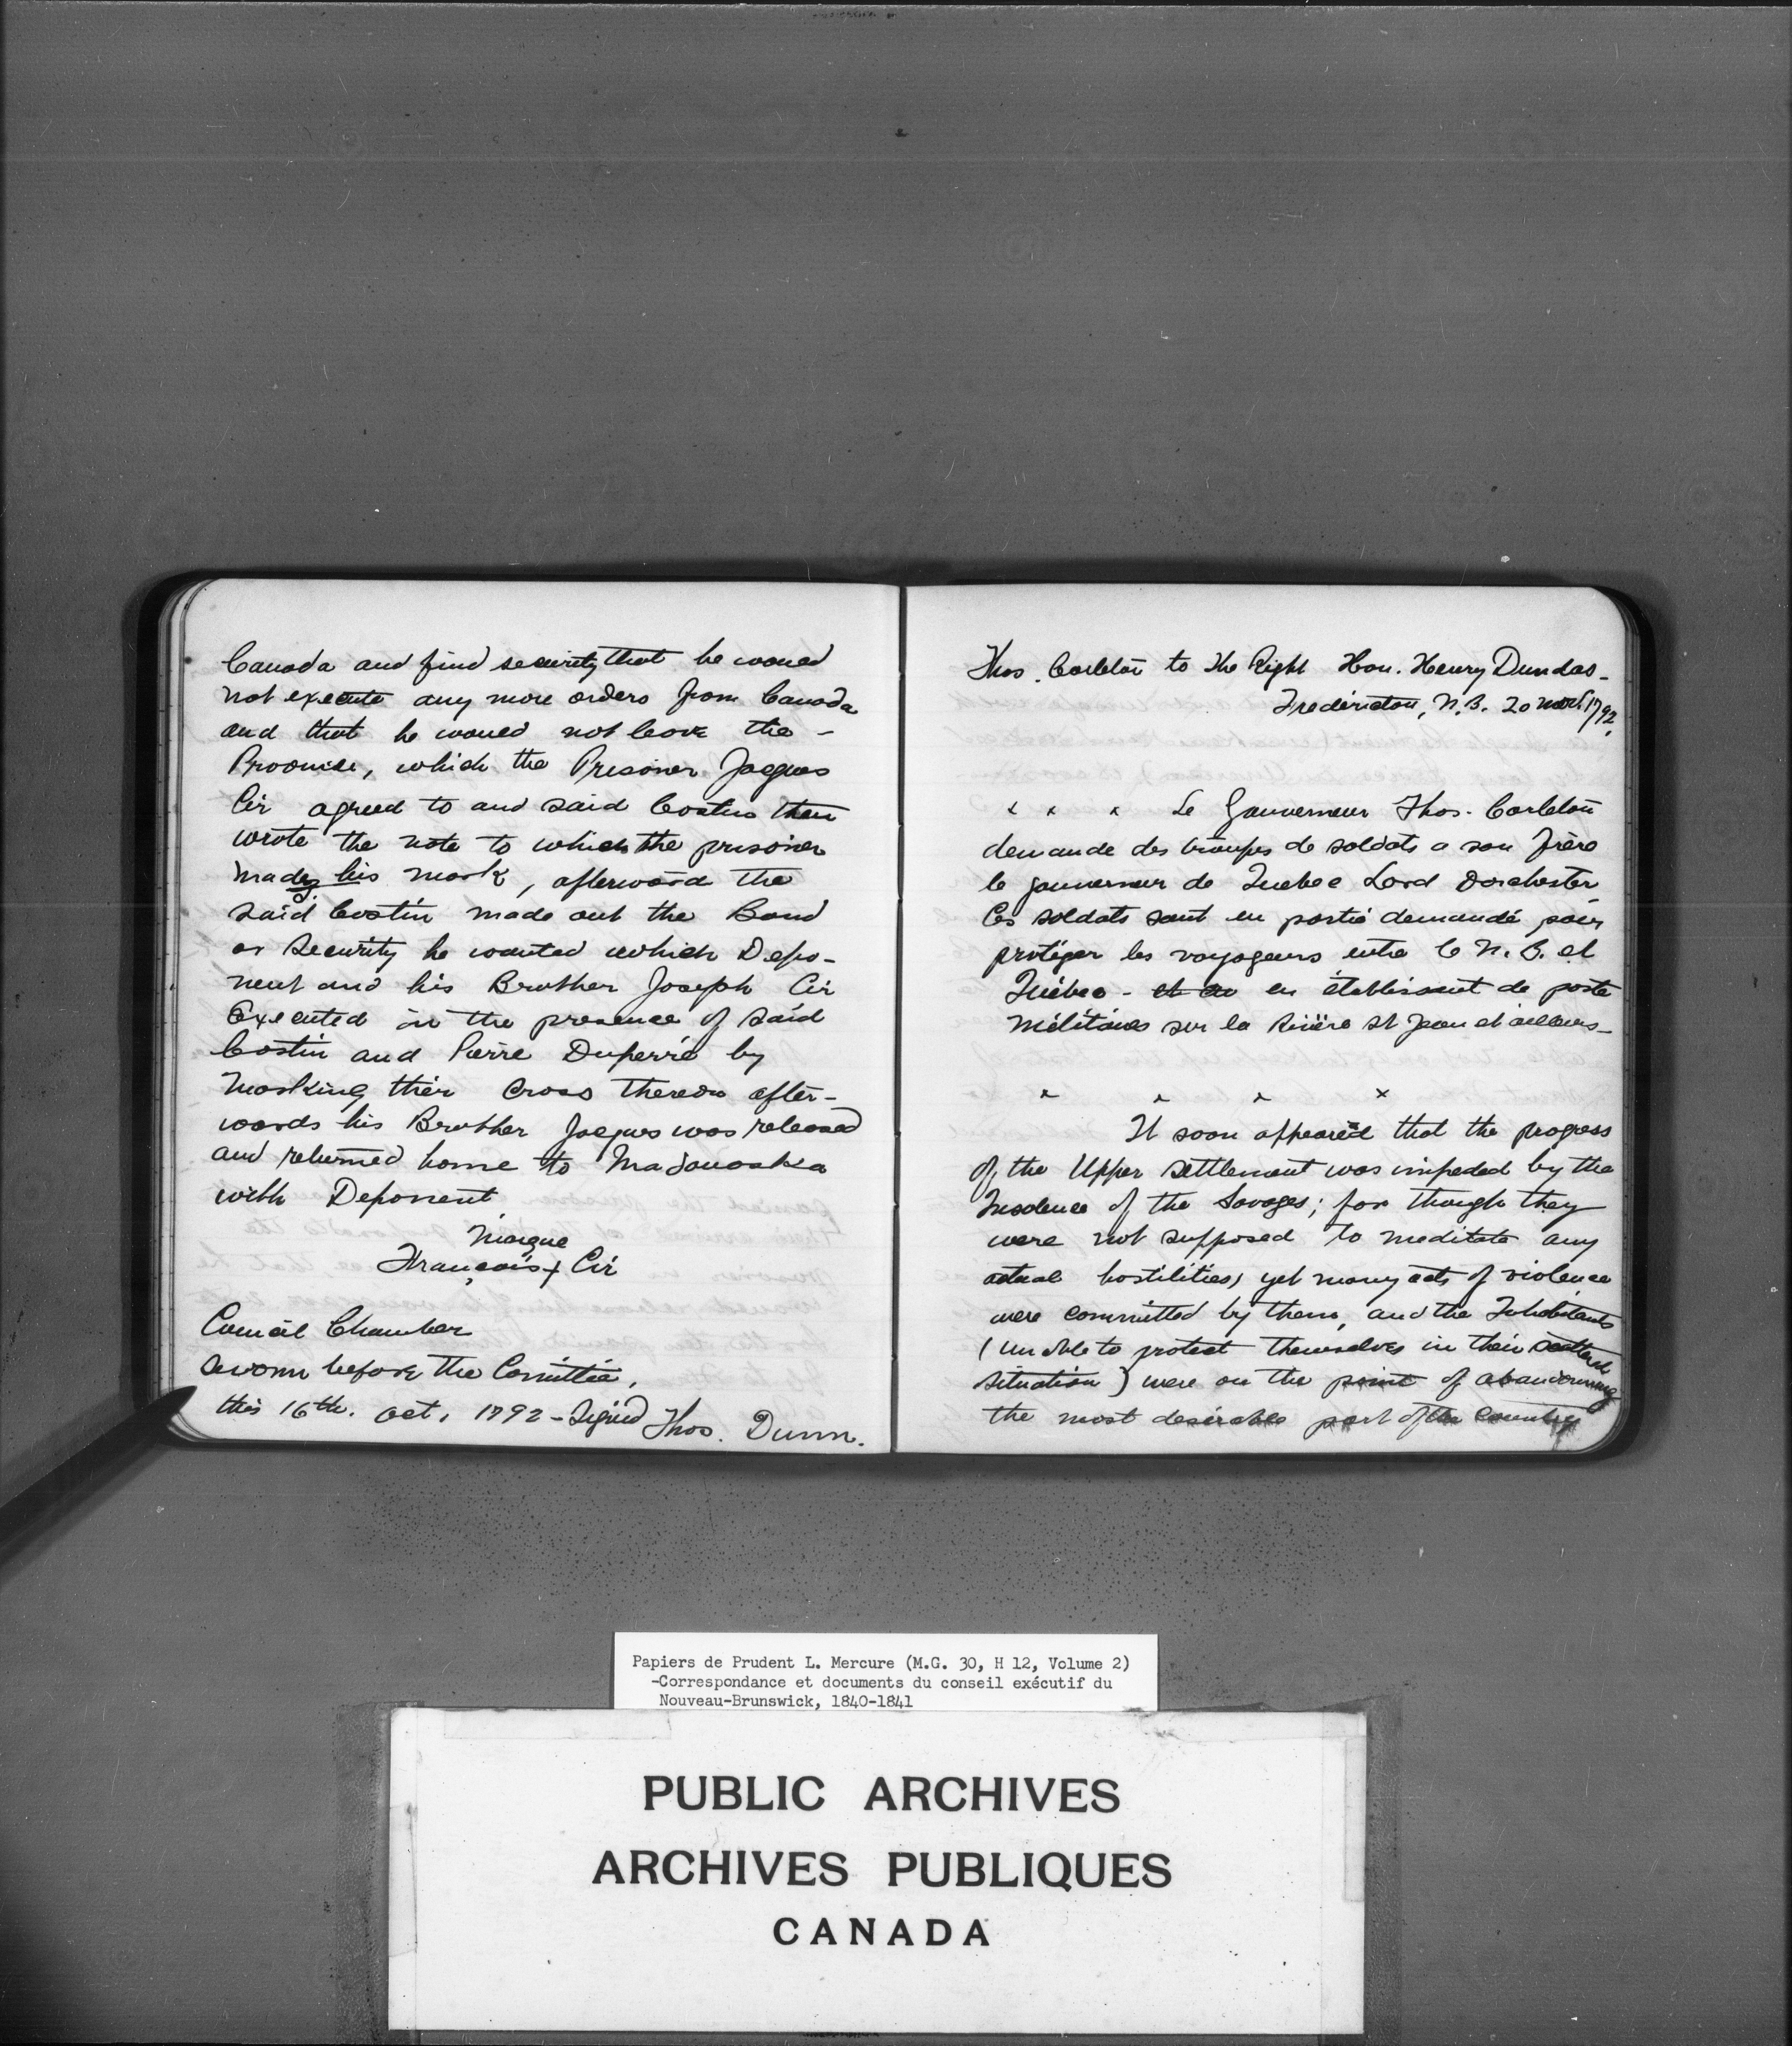 Canada and find security that he would
not execute any more orders from Canada
and that he would not leave the –
Province, which the Prisoner Jacques
Cir agreed to and said Costin then
wrote the note to which the prisoner
made his mark, afterward the
said Costin made out the Bond
or Security he wanted which Depo-
nent and his Brother Joseph Cir
Executed in the presence of said
Costin and Pierre Duperré by
Marking their Cross thereon after-
wards his Brother Jacques was released
and returned home to Madawaska
with Deponent
Marque
François + Cir
Council Chamber
Sworn before the Comittee,
this 16th. Oct, 1792 – Signed Thos. Dunn.
Thos. Carleton to the Right Hon. Henry Dundas –
Fredericton, N.B. 20 1792,
x x x Le Gouverneur Thos. Carleton
demande des troupes de soldats a son frère
le gouverneur de Quebec Lord Dorchester
Ces soldats sont en partie demandé pour
protéger les voyageurs entre le N. B. et
Québec – et en établissant de poste
Militaires sur la Rivière St Jean et ailleurs –
x x x x
It soon appeared that the progress
of the Upper settlement was impeded by the
Insolence of the Savages; for though they
were not supposed to meditate any
actual hostilities, yet many acts of violence
were committed by them, and the Inhabitants
(unable to protect themselves in their scattered
situation) were on the point of abandonning
the most desirable part of the Country
Papiers de Prudent L. Mercure (M.G. 30, H 12, Volume 2)
-Correspondance et documents du conseil exécutif du
Nouveau-Brunswick, 1840-1841
PUBLIC ARCHIVES
ARCHIVES PUBLIQUES
CANADA